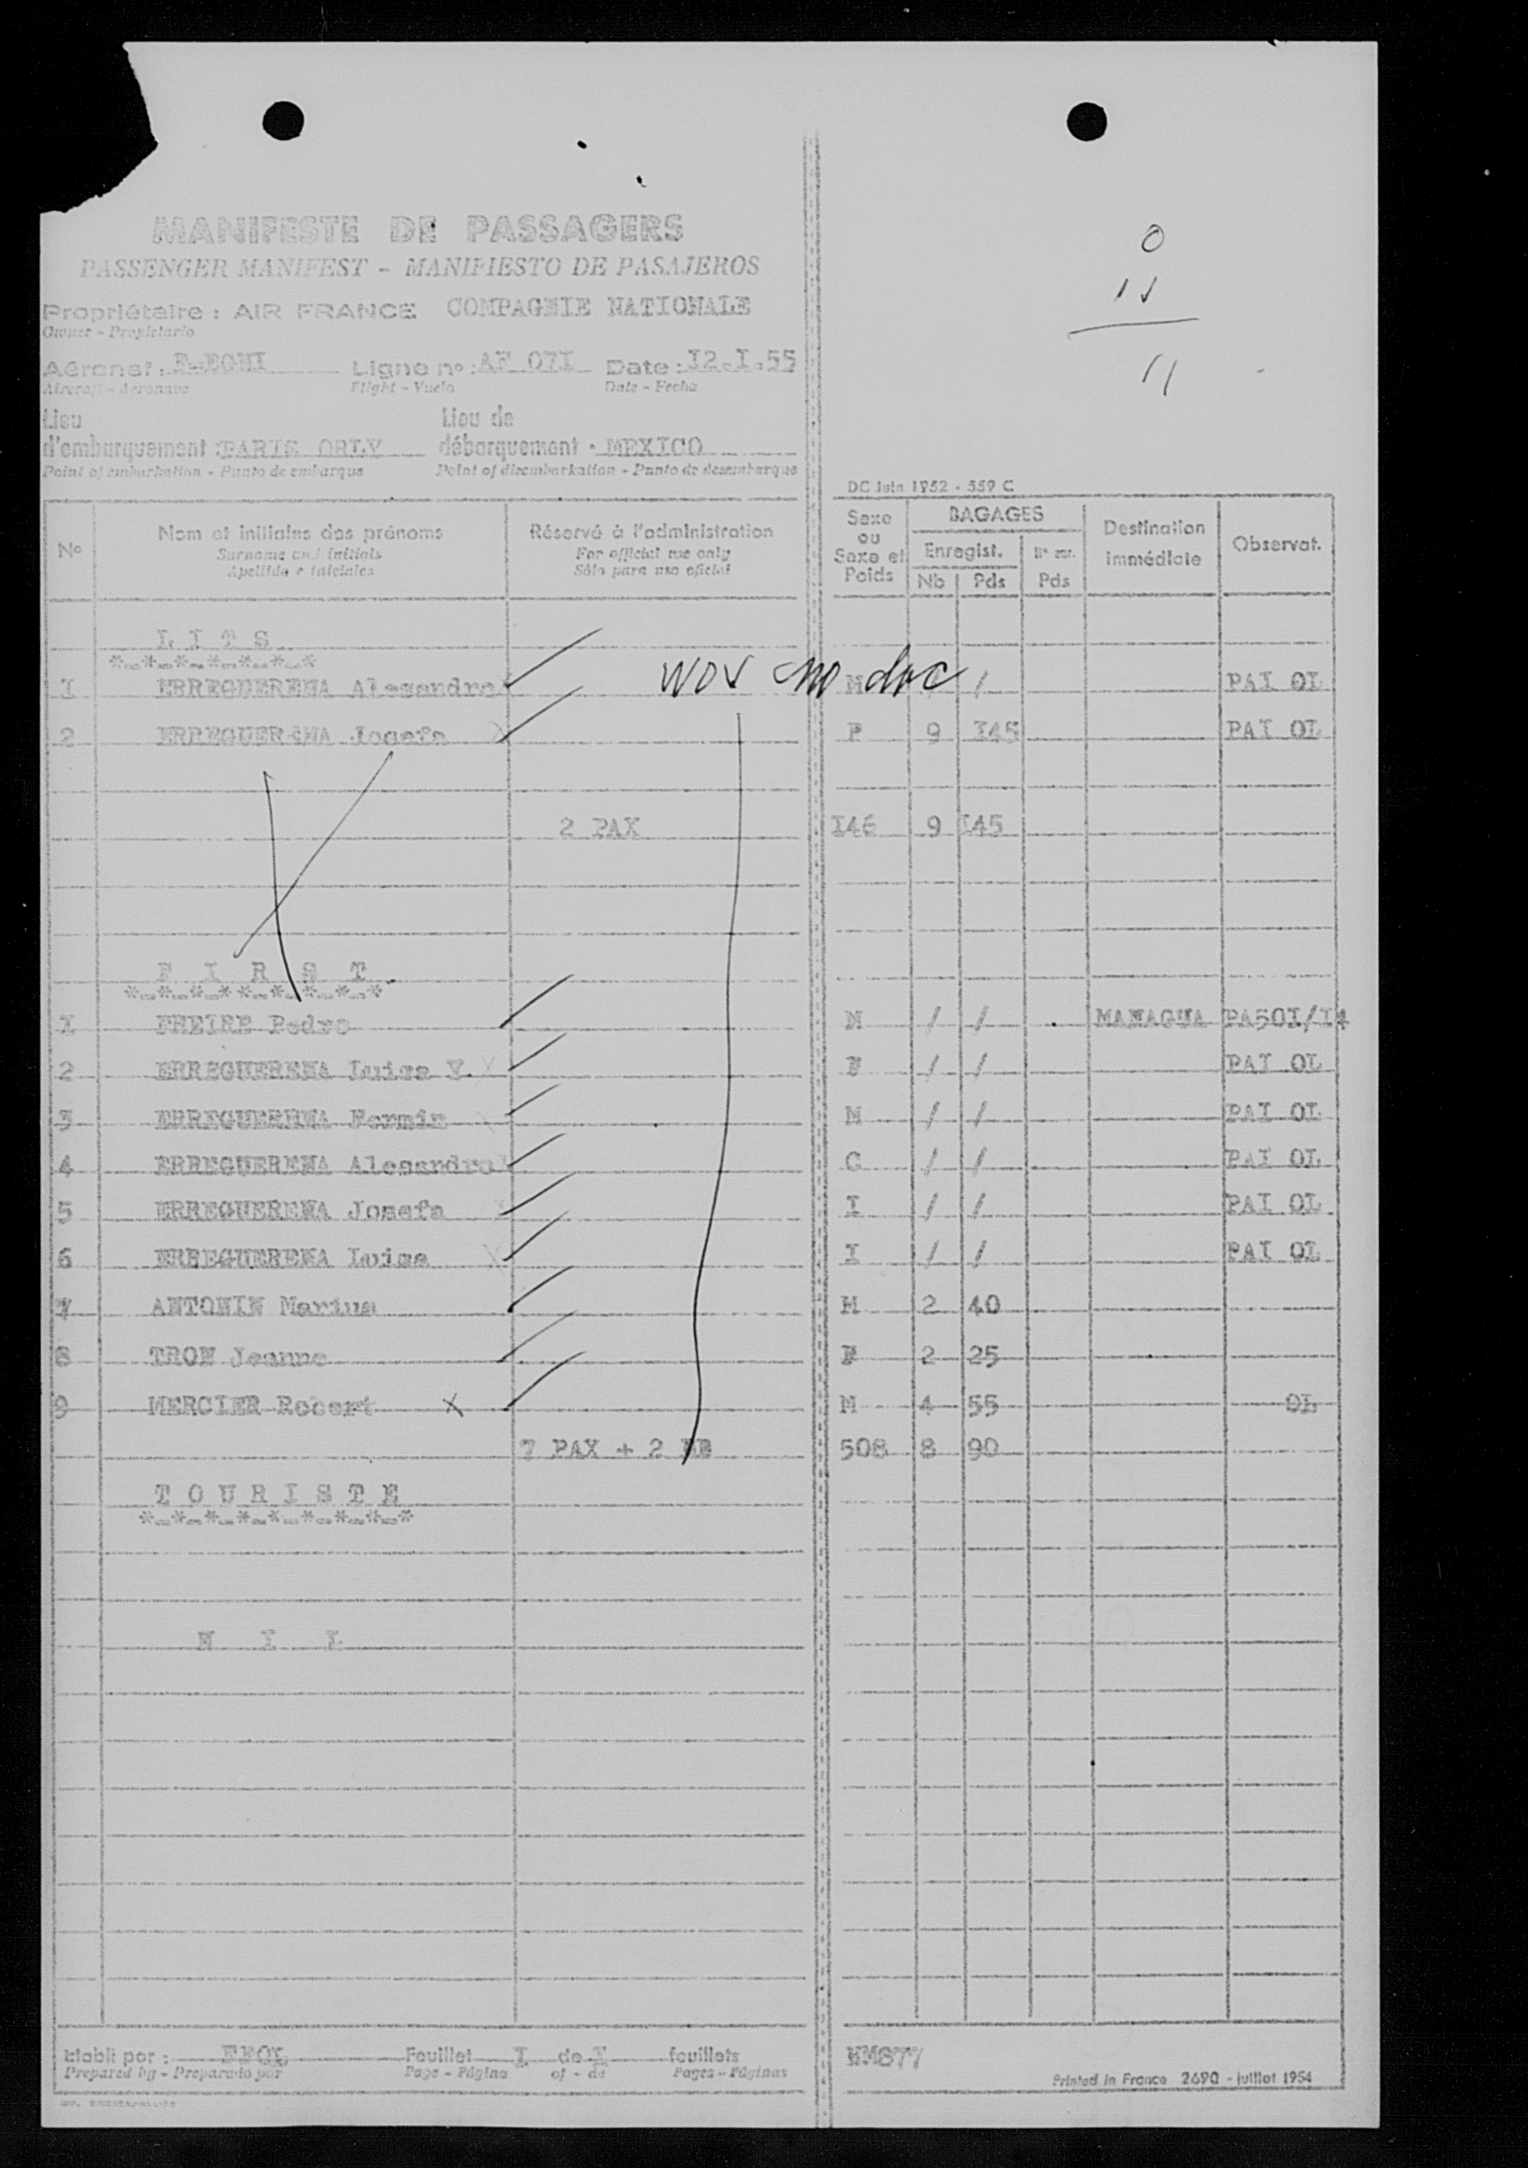 MANIFESTE DE PASSAGERS
PASSENGER MANIFEST - MANIFIESTO DE PASAJEROS
Propriétaire : AIR FRANCE COMPAGNIE NATIONALE
Owner - Propietario
Aéronef : Ligne no : AF 07I Date : I2.I.55
Aircraft - Aeronave Flight - Vuelo Date - Fecha
Lieu d'embarquement : PARIS ORLY Lieu de débarquement : MEXICO
Point of embarkation - Punto de embarque Point of disembarkation - Punto de desembarque
0
11
11
DC Juin 1952 - 559 C
No Nom et initiales des prénoms Réservé à l'administration Sexe ou Sexe et Poids BAGAGES Destination immédiate Observat.
Surname and initials For official use only Enregist.
Apellido e iniciales Sólo para uso oficial Nb Pds Pds
L I T S
*-*-*-*-*-*-*
I ERREGUERENA Alesandro wov no doc M / PAI OL
2 ERREGUERENA Josefa X F 9 I45 PAI OL
2 PAX I46 9 I45
F I R S T
*-*-*-**-*-*-*-*
I FREIRE Pedro M / / MANAGUA PA50I/I4
2 ERREGUERENA Luisa V. X F / / PAI OL
3 ERREGUERENA Fermin M / / PAI OL
4 ERREGUERENA Alesandro C / / PAI OL
5 ERREGUERENA Josefa I / / PAI OL
6 ERREGUERENA Luisa X I / / PAI OL
7 ANTONIN Marius M 2 40
8 TRON Jeanne F 2 25
9 MERCIER Robert X M 4 55 OL
7 PAX + 2 BB 508 8 90
T O U R I S T E
*-*-*-*-*-*-*-*-*
N I L
Etabli par : Feuillet I de I feuillets HM877
Prepared by - Preparado por Page - Página of - de Pages - Páginas Printed in France 2690 - juillet 1954